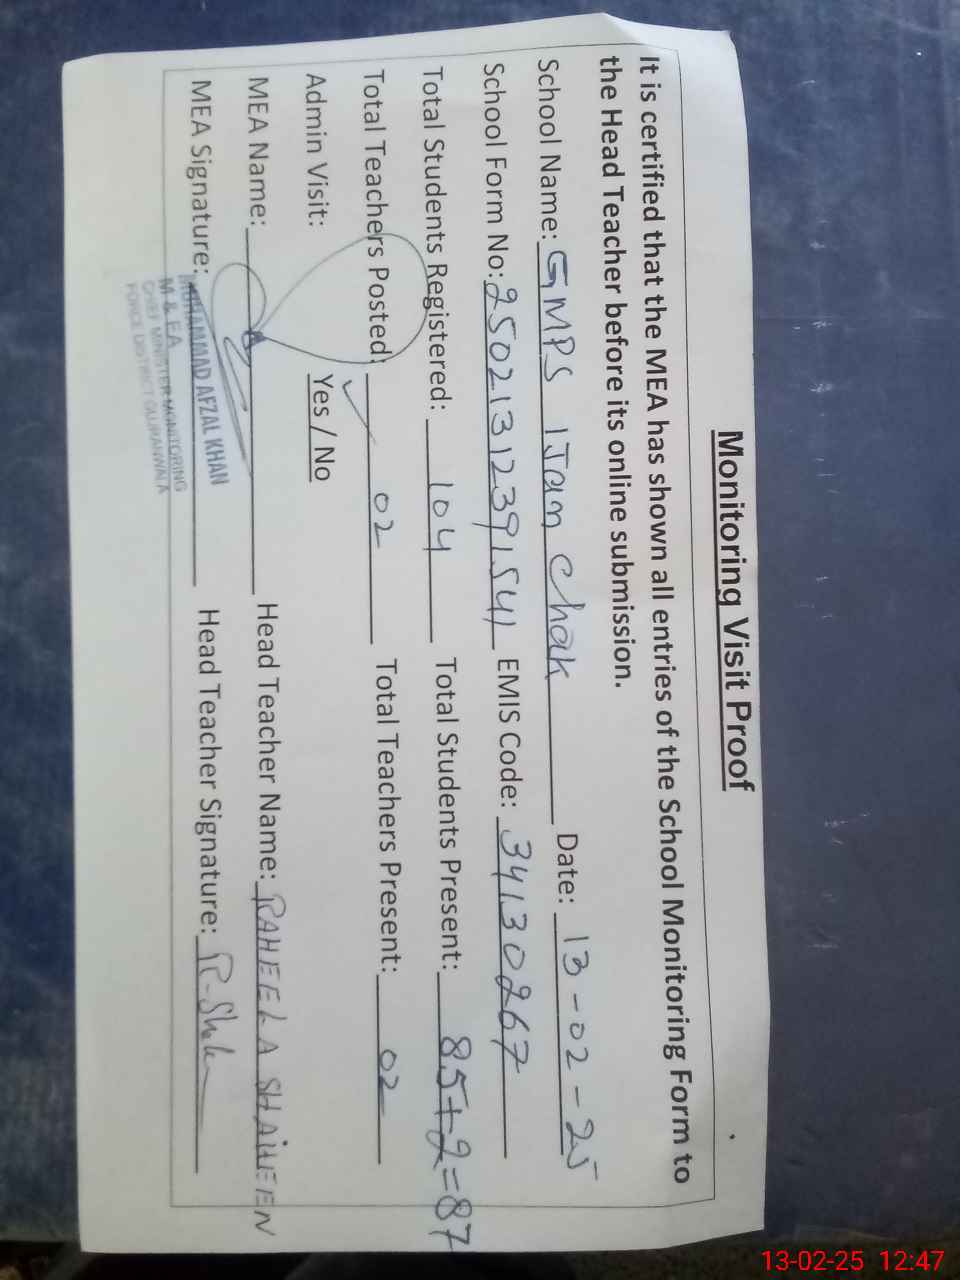 Monitoring Visit Proof
It is certified that the MEA has shown all entries of the School Monitoring Form to
the Head Teacher before its online submission.
School Name: GMPS 1Jan Chak Date: 13-02-25
School Form No: 25021312391541 EMIS Code: 34130267
Total Students Registered: 104 Total Students Present: 85+2=87
Total Teachers Posted: 02 Total Teachers Present: 02
Admin Visit: Yes / No
MEA Name: Head Teacher Name: RAHEELA SHAHEEN
MEA Signature: Head Teacher Signature:
MUHAMMAD AFZAL KHAN
M & EA
CHIEF MINISTER MONITORING
FORCE DISTRICT GUJRANWALA
13-02-25 12:47